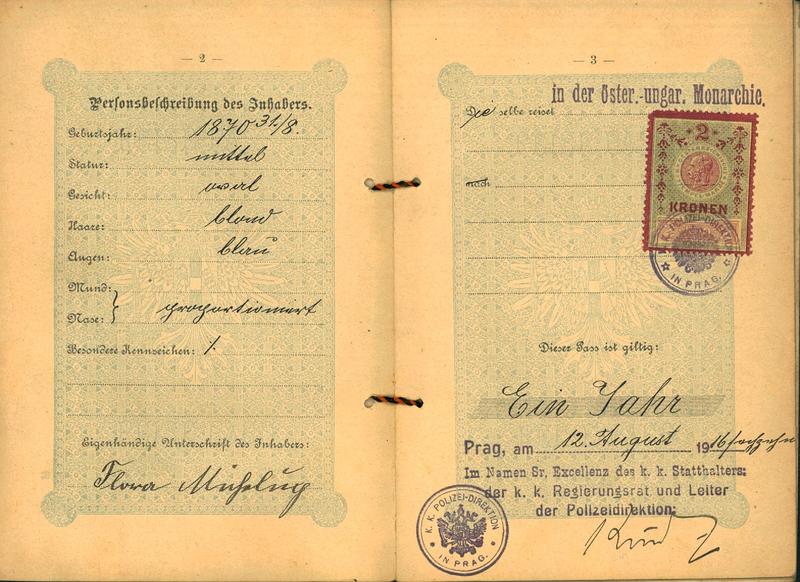 — 2 —
Personsbeschreibung des Inhabers.
Geburtsjahr: 1870 31./8.
Statur: mittel
Gesicht: oval
Haare: blond
Augen: blau
Mund:
Nase: } proportioniert
Besondere Kennzeichen: /.
Eigenhändige Unterschrift des Inhabers:
Flora
— 3 —
in der öster.-ungar. Monarchie.
Die selbe reiset
nach
2
KRONEN
K. K. POLIZEI-DIREKTION
IN PRAG.
Dieser Pass ist giltig:
Ein Jahr
Prag, am 12. August 1916
Im Namen Sr, Excellenz des k. k. Statthalters:
der k. k. Regierungsrat und Leiter
der Polizeidirektion:
K. K. POLIZEI-DIREKTION
IN PRAG.